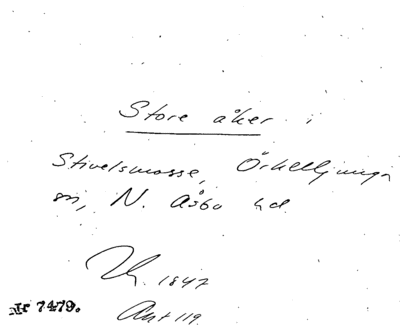 Store åker i
Stivelsmosse, Örkelljunga
sn, N. Åsbo hd
1847
Akt 119.
Nr 7479.